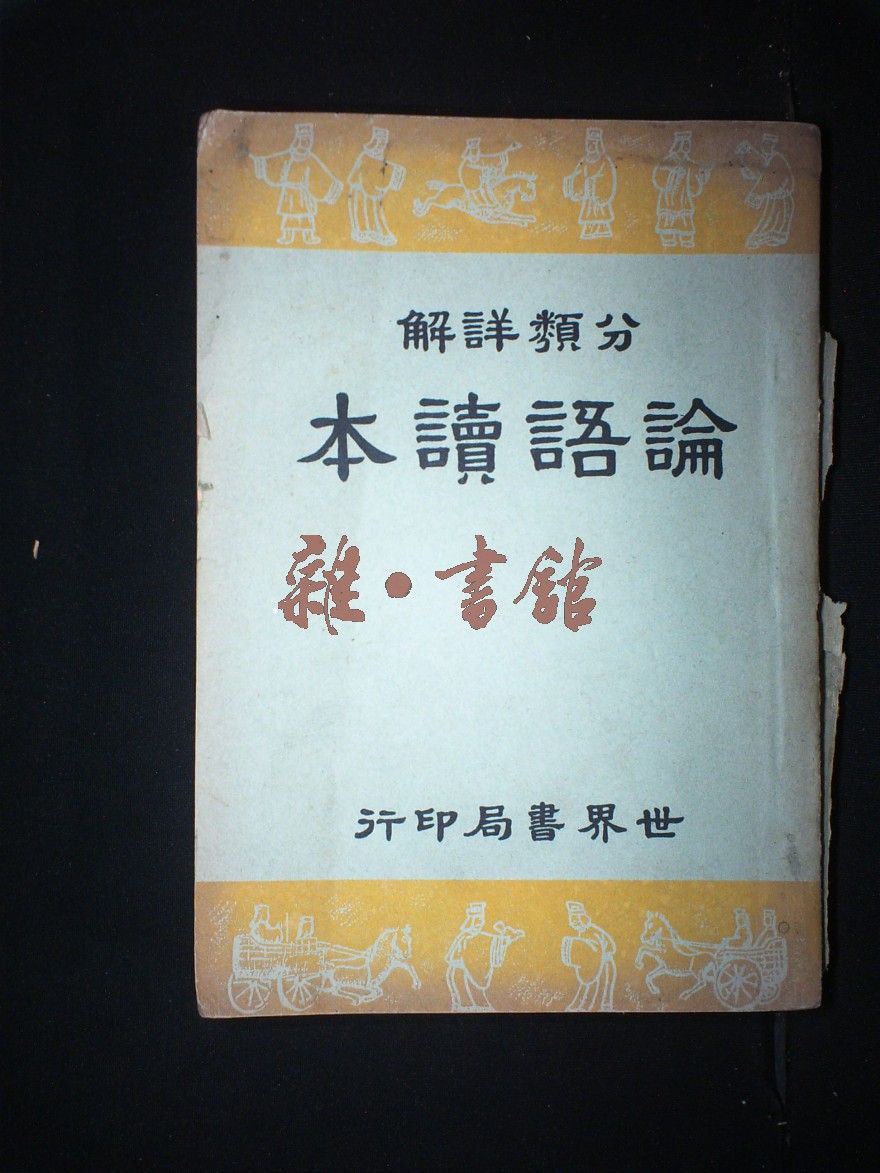 分類詳解
論語讀本
雜·書館
世界書局印行